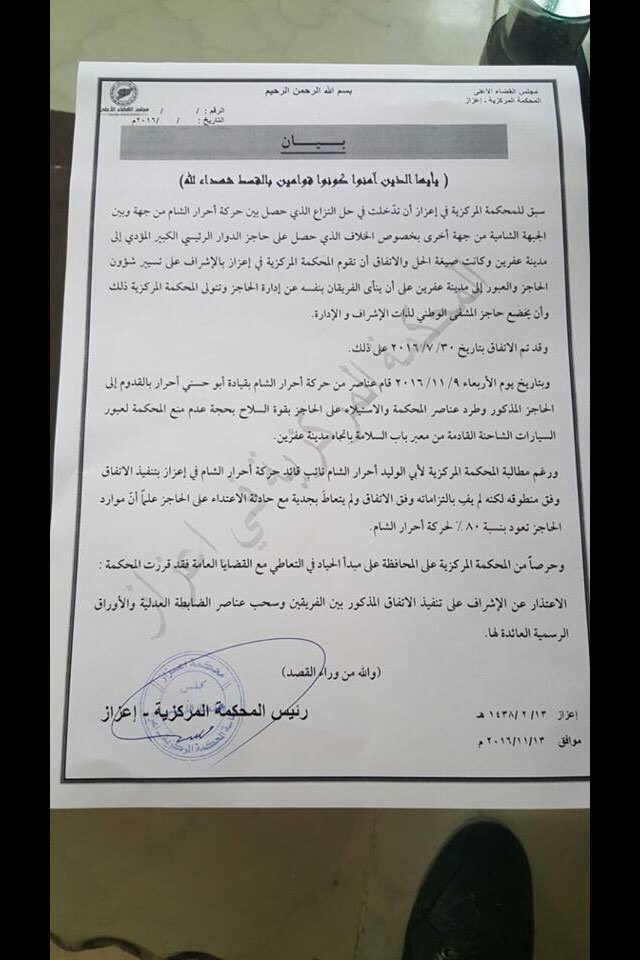 بسم الله الرحمن الرحيم
مجلس القضاء الأعلى
المحكمة المركزية - إعزاز
مجلس القضاء الأعلى
الرقم : / /
التاريخ : / /٢٠١٦م
بـــيـــان
( يأيها الذين آمنوا كونوا قوامين بالقسط شهداء لله)
سبق للمحكمة المركزية في إعزاز أن تدّخلت في حل النزاع الذي حصل بين حركة أحرار الشام من جهة وبين
الجبهة الشامية من جهة أخرى بخصوص الخلاف الذي حصل على حاجز الدوار الرئيسي الكبير المؤدي إلى
مدينة عفرين وكانت صيغة الحل والاتفاق أن تقوم المحكمة المركزية في إعزاز بالإشراف على تسيير شؤون
الحاجز والعبور إلى مدينة عفرين على أن ينأى الفريقان بنفسه عن إدارة الحاجز وتتولى المحكمة المركزية ذلك
وأن يخضع حاجز المشفى الوطني لذات الإشراف و الإدارة.
وقد تم الاتفاق بتاريخ ٣٠/ ٧/ ٢٠١٦ على ذلك.
وبتاريخ يوم الأربعاء ٩/ ١١/ ٢٠١٦ قام عناصر من حركة أحرار الشام بقيادة أبو حسني أحرار بالقدوم إلى
الحاجز المذكور وطرد عناصر المحكمة والاستيلاء على الحاجز بقوة السلاح بحجة عدم منع المحكمة لعبور
السيارات الشاحنة القادمة من معبر باب السلامة باتجاه مدينة عفرين.
ورغم مطالبة المحكمة المركزية لأبي الوليد أحرار الشام نائب قائد حركة أحرار الشام في إعزاز بتنفيذ الاتفاق
وفق منطوقه لكنه لم يفِ بالتزاماته وفق الاتفاق ولم يتعاطَ بجدية مع حادثة الاعتداء على الحاجز علماً أنّ موارد
الحاجز تعود بنسبة ٨٠ ٪ لحركة أحرار الشام.
وحرصاً من المحكمة المركزية على المحافظة على مبدأ الحياد في التعاطي مع القضايا العامة فقد قررت المحكمة :
الاعتذار عن الإشراف على تنفيذ الاتفاق المذكور بين الفريقين وسحب عناصر الضابطة العدلية والأوراق
الرسمية العائدة لها.
(والله من وراء القصد)
رئيس المحكمة المركزية - إعزاز
إعزاز ١٣/ ٢/ ١٤٣٨ هـ
موافق ٢٠١٦/١١/١٣ م
المحكمة المركزية في اعزاز